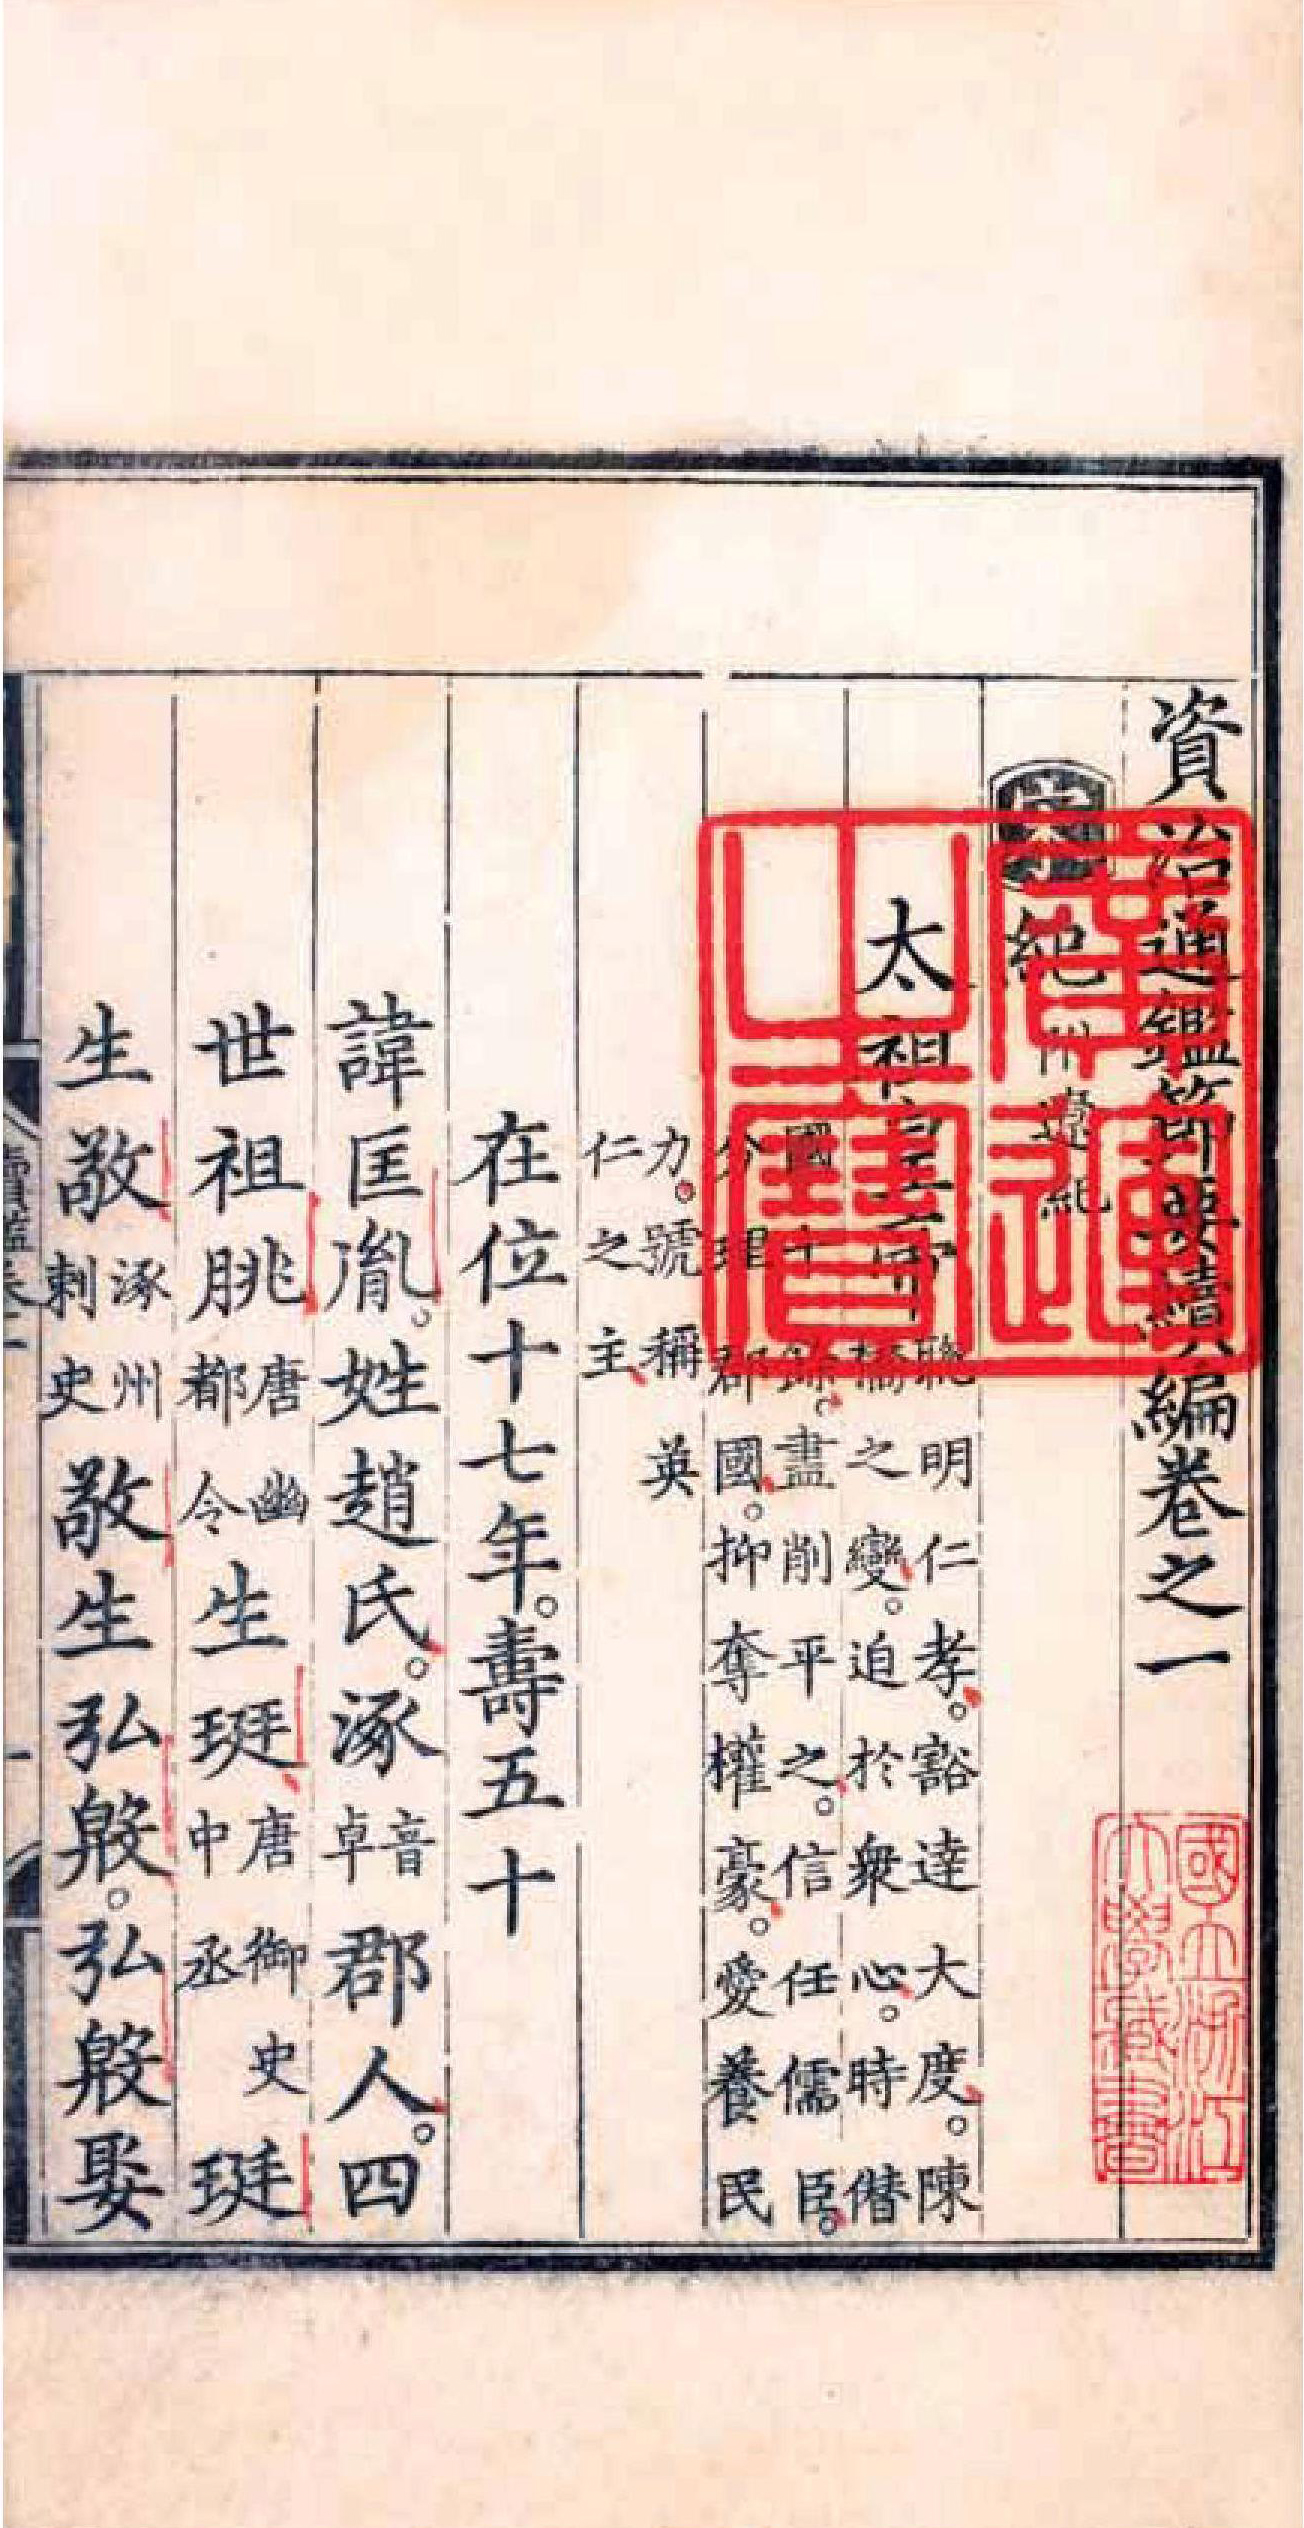 資治通鑑節要續編卷之一
宋紀 附遼紀
太祖皇帝 聰明仁孝。豁達大度。陳
橋之變。迫於衆心。時僭
國十餘。盡削平之。信任儒臣。
分理郡國。抑奪權豪。愛養民
力。號稱英
仁之主
在位十七年。壽五十
諱匡胤。姓趙氏。涿音卓郡人。四
世祖朓唐幽都令生珽唐御史中丞珽
生敬涿州刺史敬生弘殷。弘殷娶
國立浙江
大學藏書